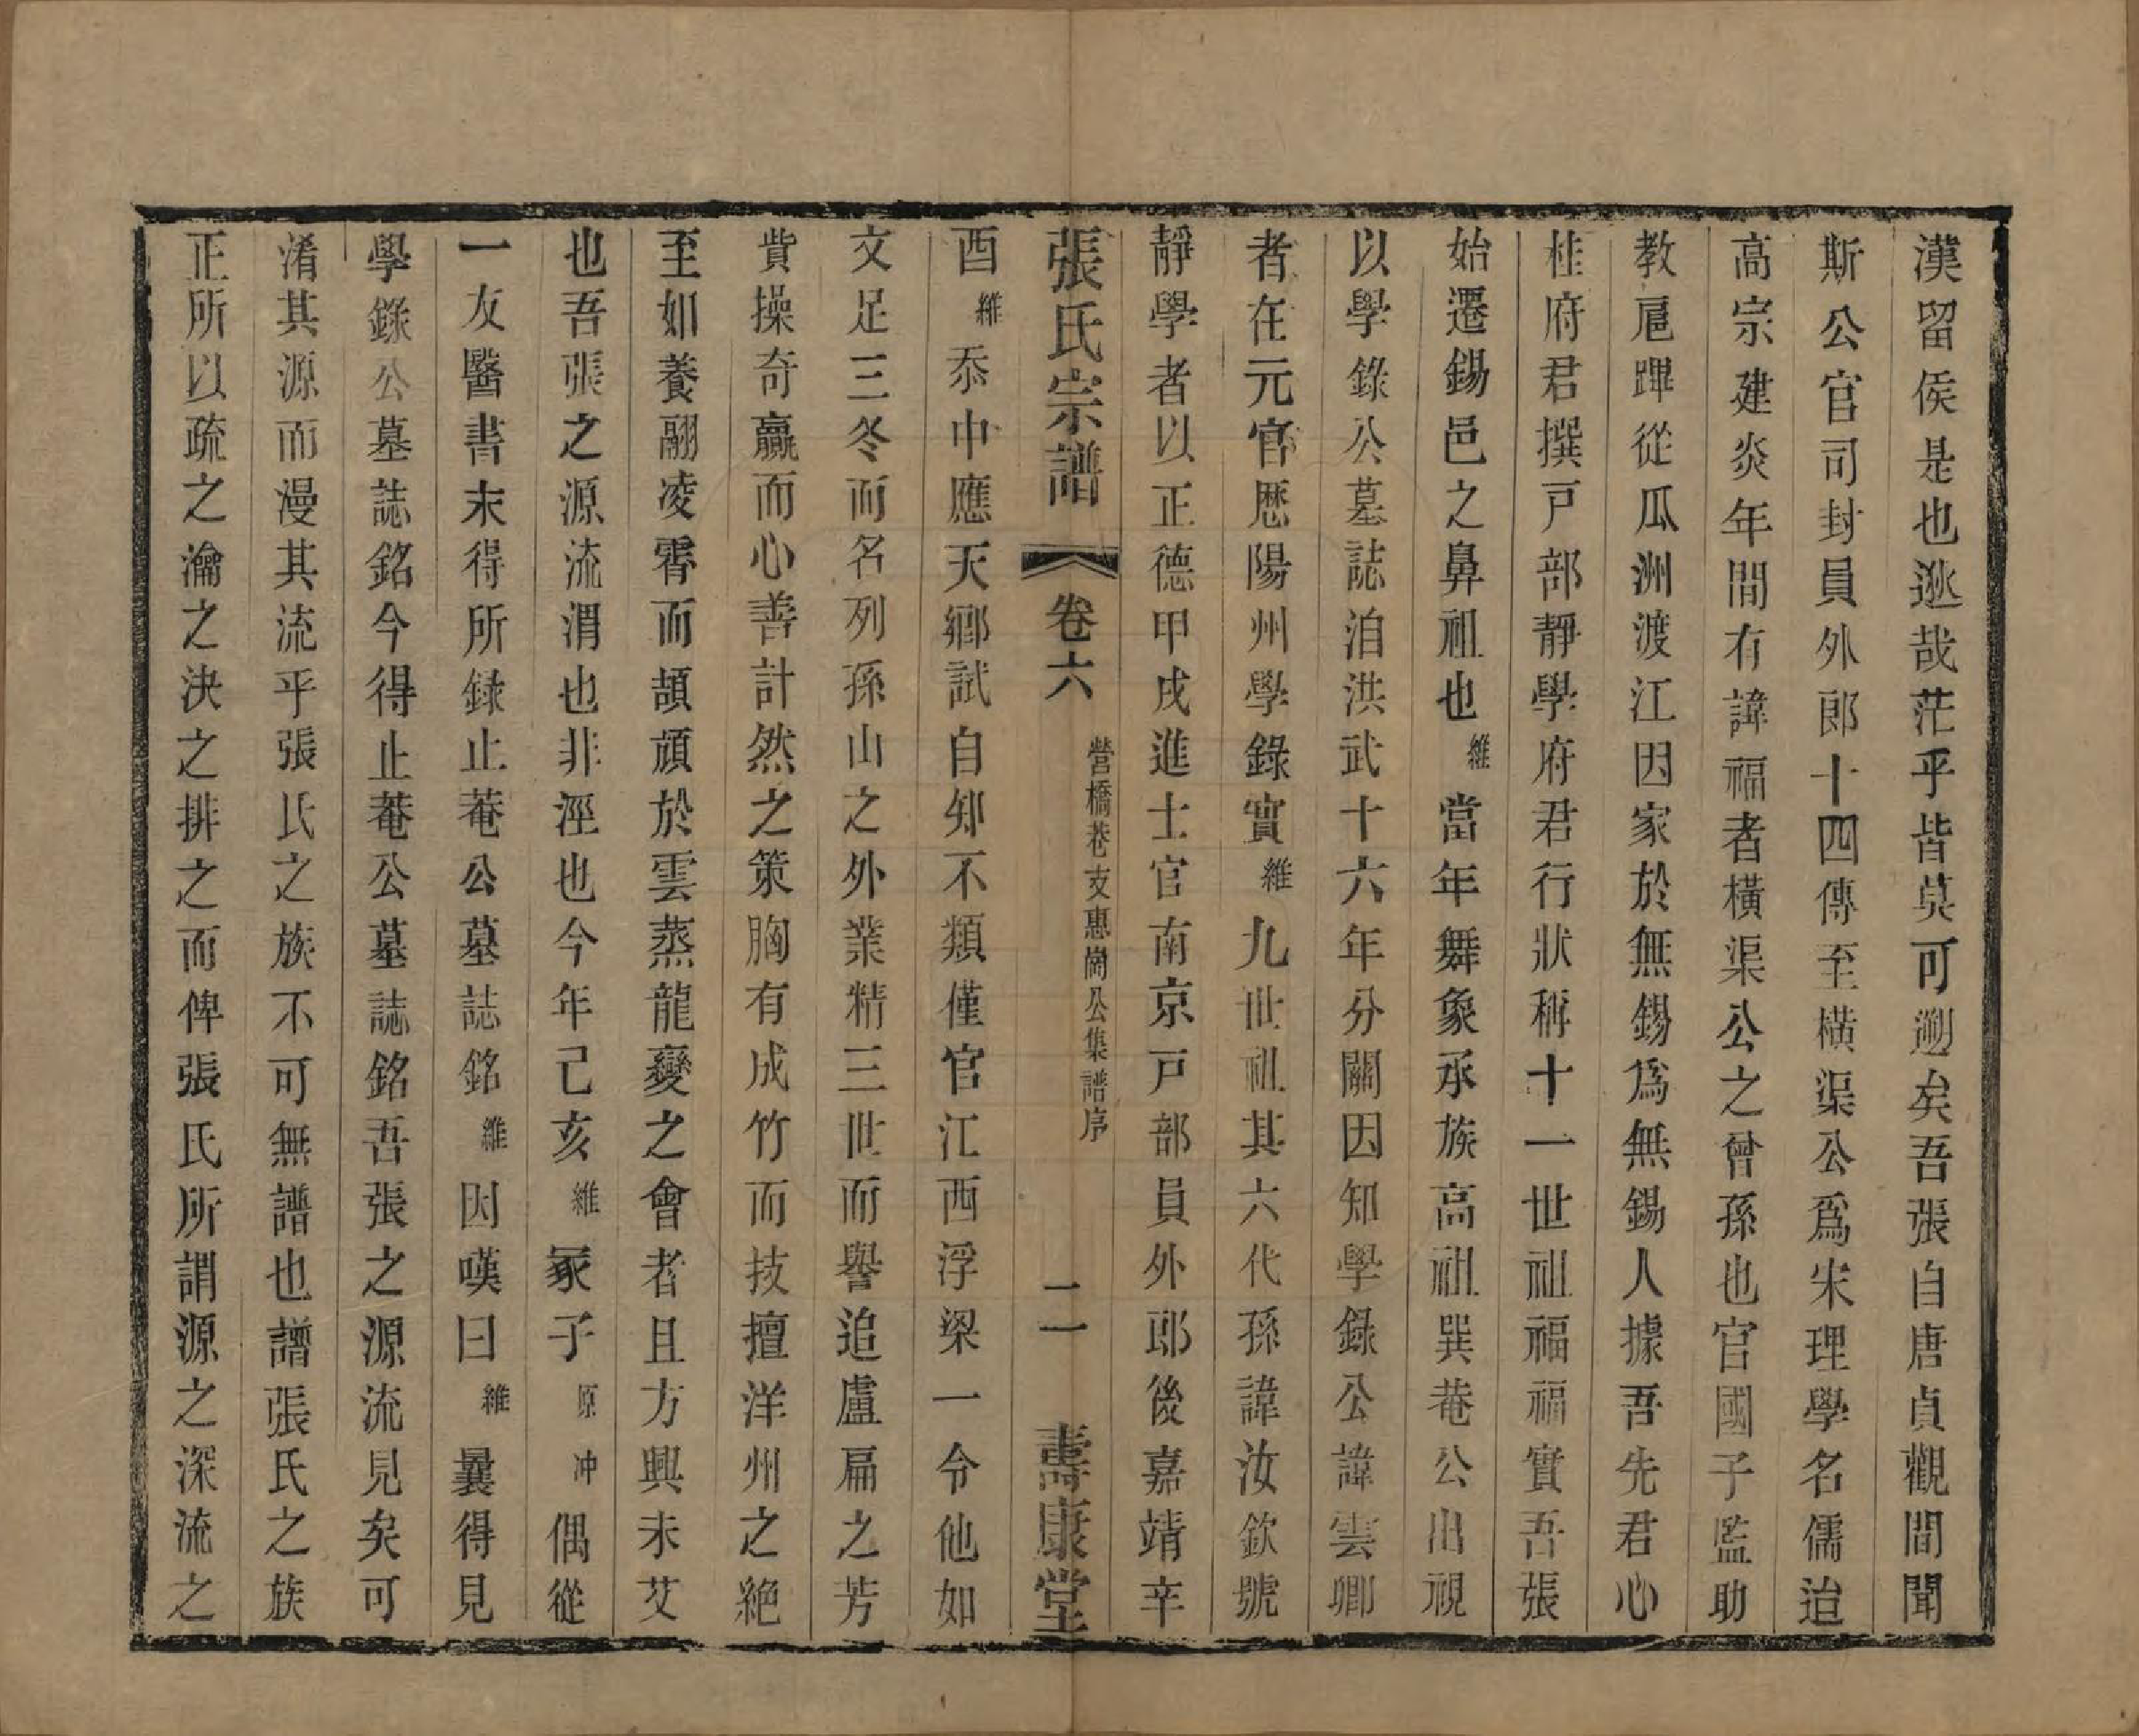 漢留侯是也逖哉茫乎皆莫可遡矣吾張自唐貞觀間聞
斯公官司封員外郎十四傳至橫渠公爲宋理學名儒迨
高宗建炎年間有諱福者橫渠公之曾孫也官國子監助
教扈蹕從瓜洲渡江因家於無錫爲無錫人據吾先君心
桂府君撰戸部靜學府君行狀稱十一世祖福福實吾張
始遷錫邑之鼻祖也維當年舞象承族高祖巽菴公出視
以學錄公墓誌洎洪武十六年分關因知學錄公諱雲卿
者在元官厯陽州學錄實維九世祖其六代孫諱汝欽號
靜學者以正德甲戌進士官南京戸部員外郎後嘉靖辛
張氏宗譜 卷六 營橋巷支惠崗公集譜序 二 壽康堂
酉維忝中應天鄉試自知不類僅官江西浮梁一令他如
文足三冬而名列孫山之外業精三世而譽追盧扁之芳
貲操奇贏而心善計然之策胸有成竹而技擅洋州之絕
至如養翮凌霄而頡頏於雲蒸龍變之會者且方興未艾
也吾張之源流渭也非涇也今年己亥維冢子原冲偶從
一友醫書末得所錄止菴公墓誌銘維因嘆曰維曩得見
學錄公墓誌銘今得止菴公墓誌銘吾張之源流見矣可
淆其源而漫其流乎張氏之族不可無譜也譜張氏之族
正所以疏之瀹之決之排之而俾張氏所謂源之深流之